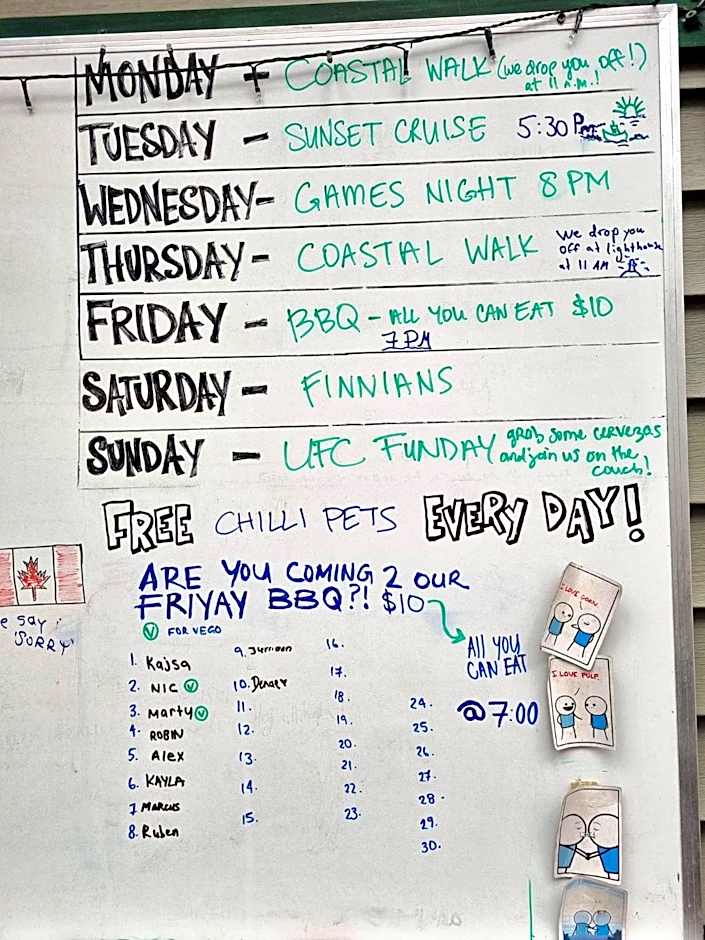 MONDAY - COASTAL WALK (we drop you off!)
at 11 A.M.!
TUESDAY - SUNSET CRUISE 5:30 PM
WEDNESDAY- GAMES NIGHT 8 PM
THURSDAY - COASTAL WALK We drop you
off at lighthouse
at 11 AM
FRIDAY - BBQ - ALL YOU CAN EAT $10
7 PM
SATURDAY - FINNIANS
SUNDAY - UFC FUNDAY grab some cervezas
and join us on the
couch!
FREE CHILLI PETS EVERY DAY!
ARE YOU COMING 2 OUR
FRIYAY BBQ?! $10
V FOR VEGO
All YOU
CAN EAT
@ 7:00
1. Kajsa
2. NIC V
3. Marty V
4. ROBIN
5. Alex
6. KAYLA
7 MARCUS
8. Ruben
9.
10.
11.
12.
13.
14.
15.
16.
17.
18.
19.
20.
21.
22.
23.
24.
25.
26.
27.
28.
29.
30.
say
'SORRY'
I LOVE CORN.
I LOVE PULP.